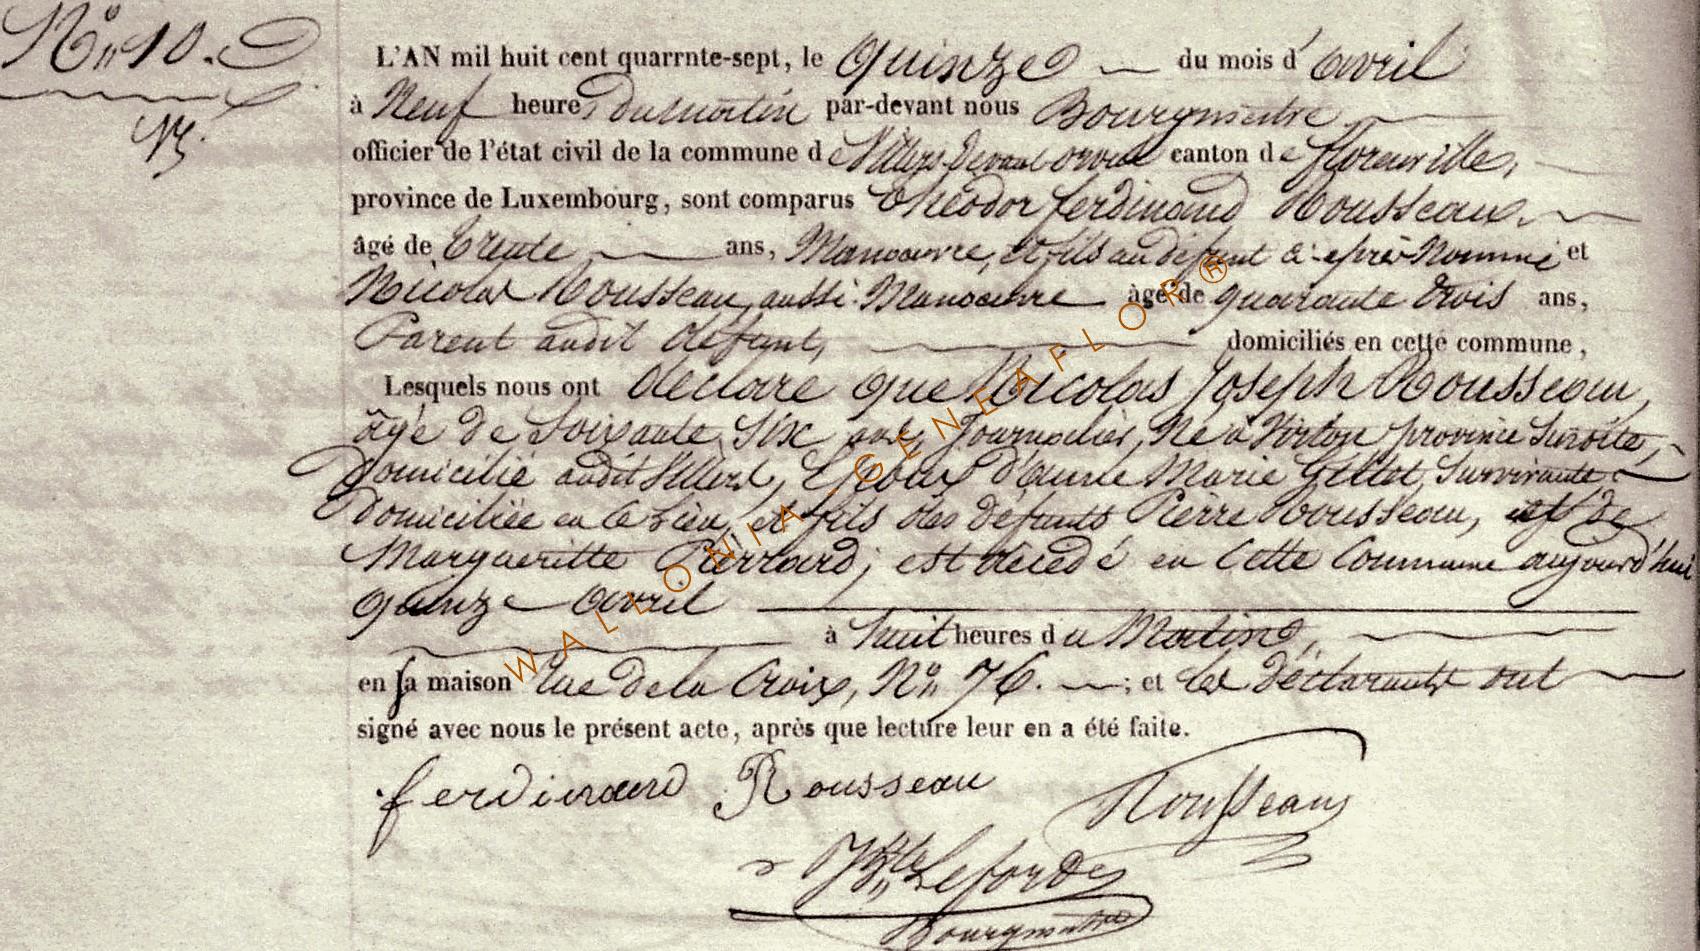 N° 10.
L'AN mil huit cent quarrnte-sept, le quinze du mois d'avril
à Neuf heures du matin par-devant nous Bourgmestre
officier de l'état civil de la commune de Villers devant orval canton de florenville,
province de Luxembourg, sont comparus Théodor ferdinand Rousseau,
âgé de trente ans, Manoeuvre, et fils au défunt ci-après Nommé et
Nicolas Rousseau, aussi Manoeuvre âgé de quarante trois ans,
Parent audit défunt, domiciliés en cette commune,
Lesquels nous ont déclaré que Nicolas Joseph Rousseau,
âgé de Soixante Six ans, Journalier, Né à Virton province Susdite,
Domicilié audit Villers, Epoux d'anne Marie Gillot, Survivante
Domiciliée en ce Lieu, et fils des défunts Pierre Rousseau, et de
Margueritte Pierrard; est décédé en cette Commune aujourd'hui
quinze avril
à huit heures du Matin,
en sa maison Rue de la Croix, N° 76. ; et les déclarants ont
signé avec nous le présent acte, après que lecture leur en a été faite.
ferdinand Rousseau Rousseau
Lefordes
Bourgmestre
WALLONIA-GENEAFLOR®